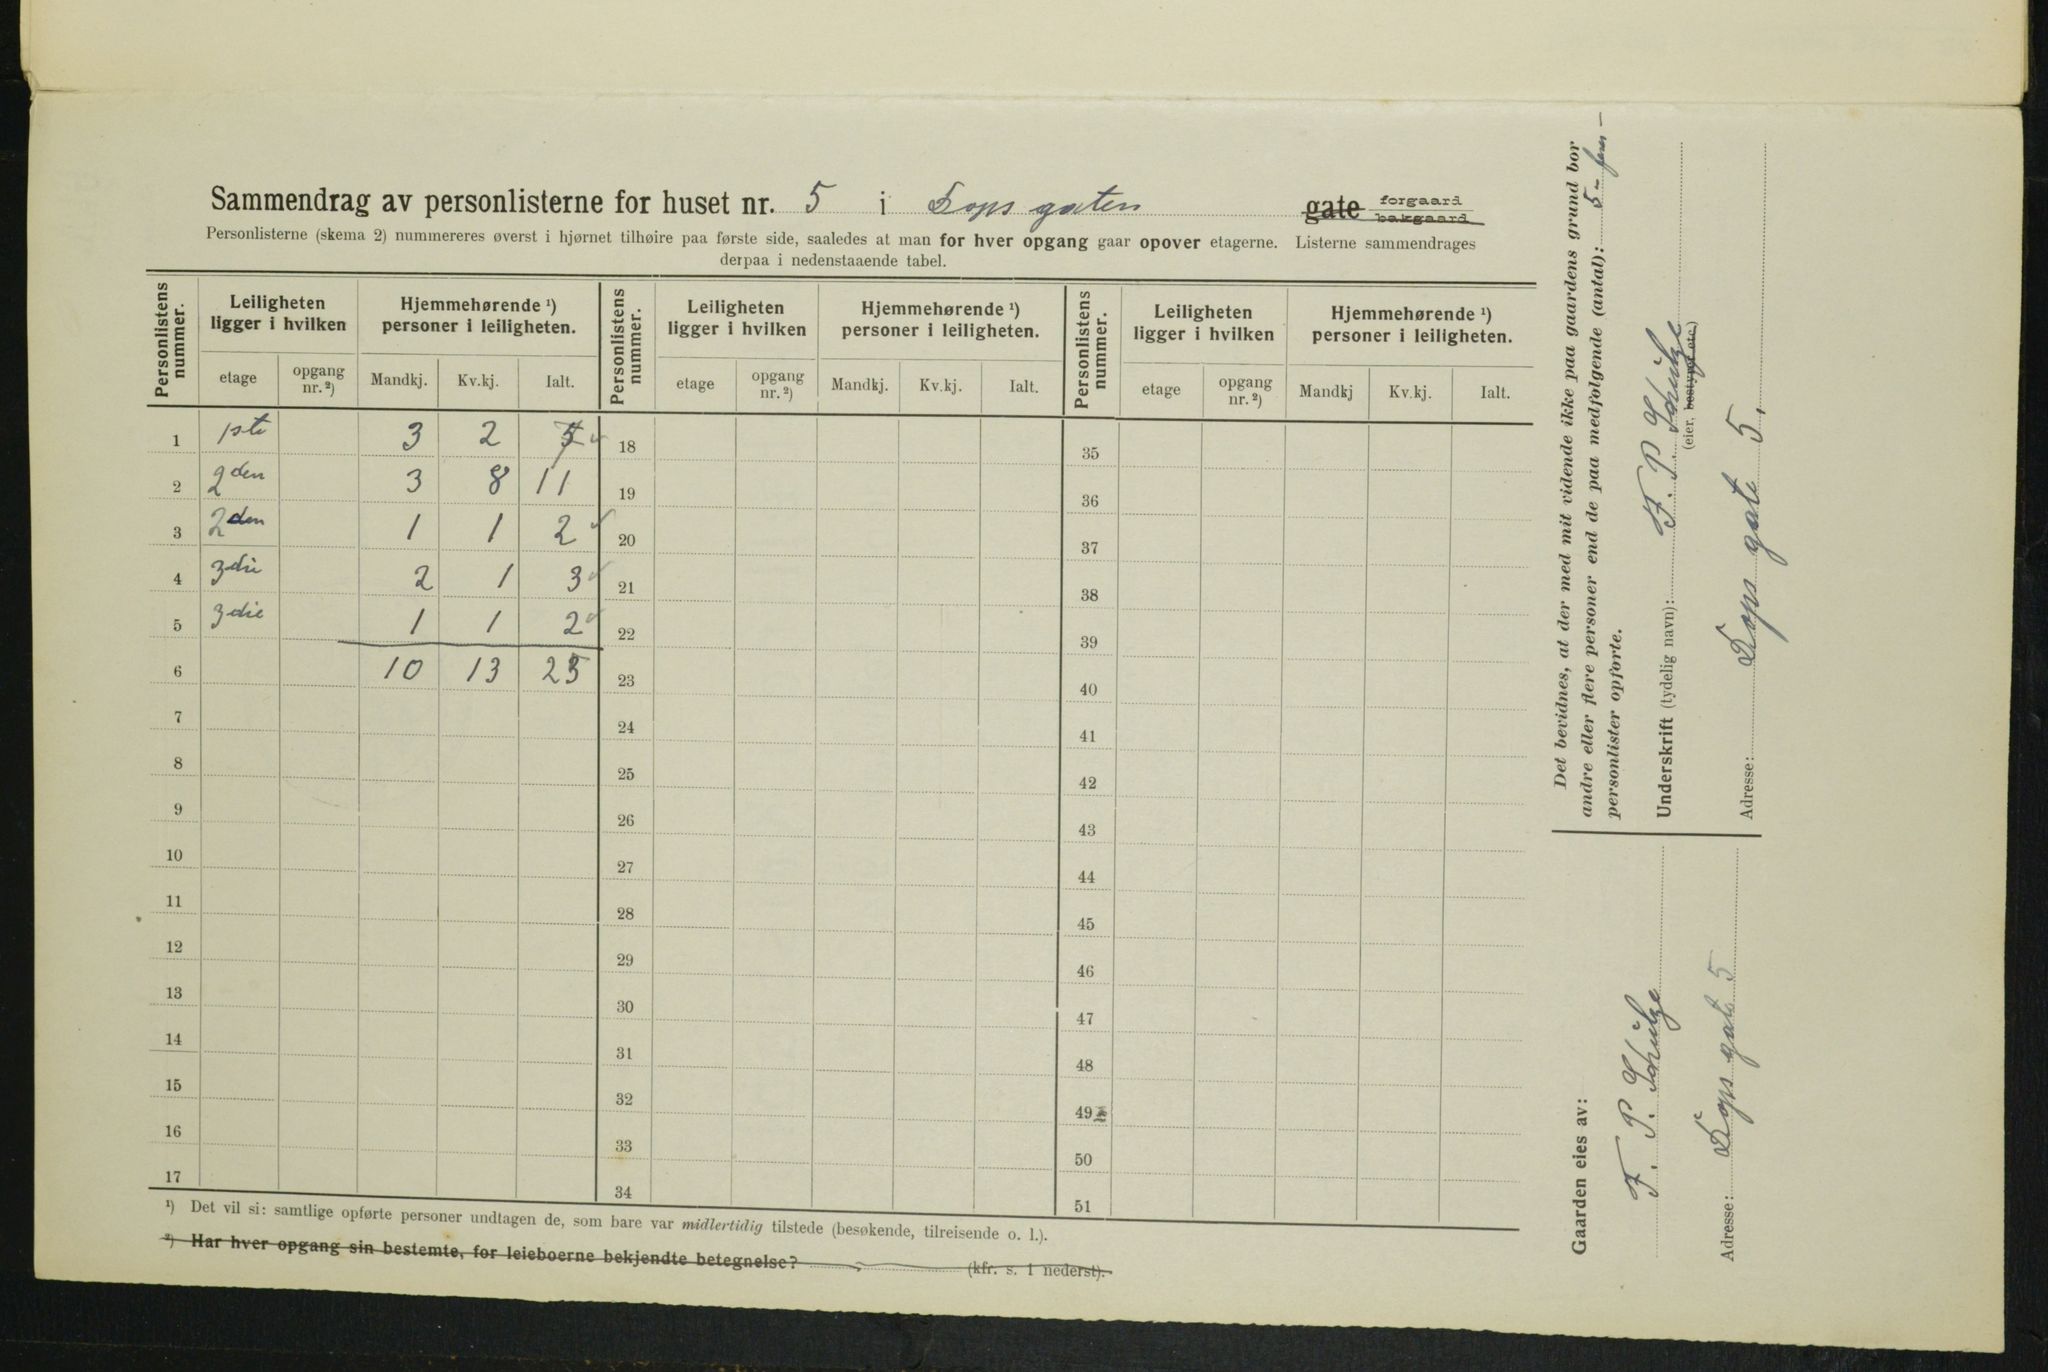 Sammendrag av personlisterne for huset nr. 5 i Dops gaten gate forgaard bakgaard
Personlisterne (skema 2) nummereres øverst i hjørnet tilhøire paa første side, saaledes at man for hver opgang gaar opover etagerne. Listerne sammendrages
derpaa i nedenstaaende tabel.
Personlistens nummer. Leiligheten ligger i hvilken Hjemmehørende ¹) personer i leiligheten. Personlistens nummer. Leiligheten ligger i hvilken Hjemmehørende ¹) personer i leiligheten. Personlistens nummer. Leiligheten ligger i hvilken Hjemmehørende ¹) personer i leiligheten.
etage opgang nr. ²) Mandkj. Kv.kj. Ialt. etage opgang nr. ²) Mandkj. Kv.kj. Ialt. etage opgang nr. ²) Mandkj Kv.kj. Ialt.
1 1ste 3 2 5 18 35
2 2den 3 8 11 19 36
3 2den 1 1 2 20 37
4 3die 2 1 3 21 38
5 3die 1 1 2 22 39
6 10 13 23 23 40
7 24 41
8 25 42
9 26 43
10 27 44
11 28 45
12 29 46
13 30 47
14 31 48
15 32 49
16 33 50
17 34 51
¹) Det vil si: samtlige opførte personer undtagen de, som bare var midlertidig tilstede (besøkende, tilreisende o. l.).
²) Har hver opgang sin bestemte, for leieboerne bekjendte betegnelse? (kfr. s. 1 nederst).
Det bevidnes, at der med mit vidende ikke paa gaardens grund bor
andre eller flere personer end de paa medfølgende (antal): 5 – fem –
personlister opførte.
Underskrift (tydelig navn): F. P. Schütze
(eier, bestyrer etc.)
Adresse: Dops gate 5.
Gaarden eies av:
F. P. Schütze
Adresse: Dops gate 5